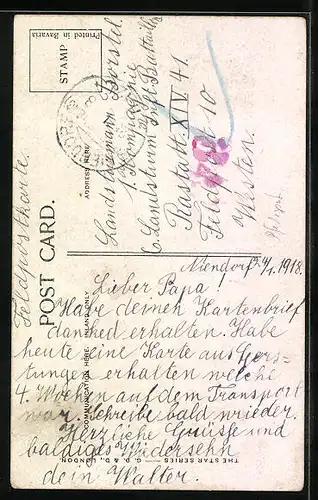 Printed in Bavaria
STAMP
Feldpostkarte.
POST CARD.
ADDRESS HERE
COMMUNICATION HERE INLAND ONLY
THE STAR SERIES G. D. & D., LONDON.
Landsturmmann Borstel.
1. Kompagnie
Landsturm Inft Battaillon
Rastatt. XIV 41.
Feldpost 10
Westen.
Niendorf 24/1. 1918.
Lieber Papa
Habe deinen Kartenbrief
dankend erhalten. Habe
heute eine Karte aus Gers=
tungen erhalten welche
4. Wochen auf dem Transport
war. Schreibe bald wrieder.
Herzliche Grüsse und
baldiges Wiedersehh
dein Walter.